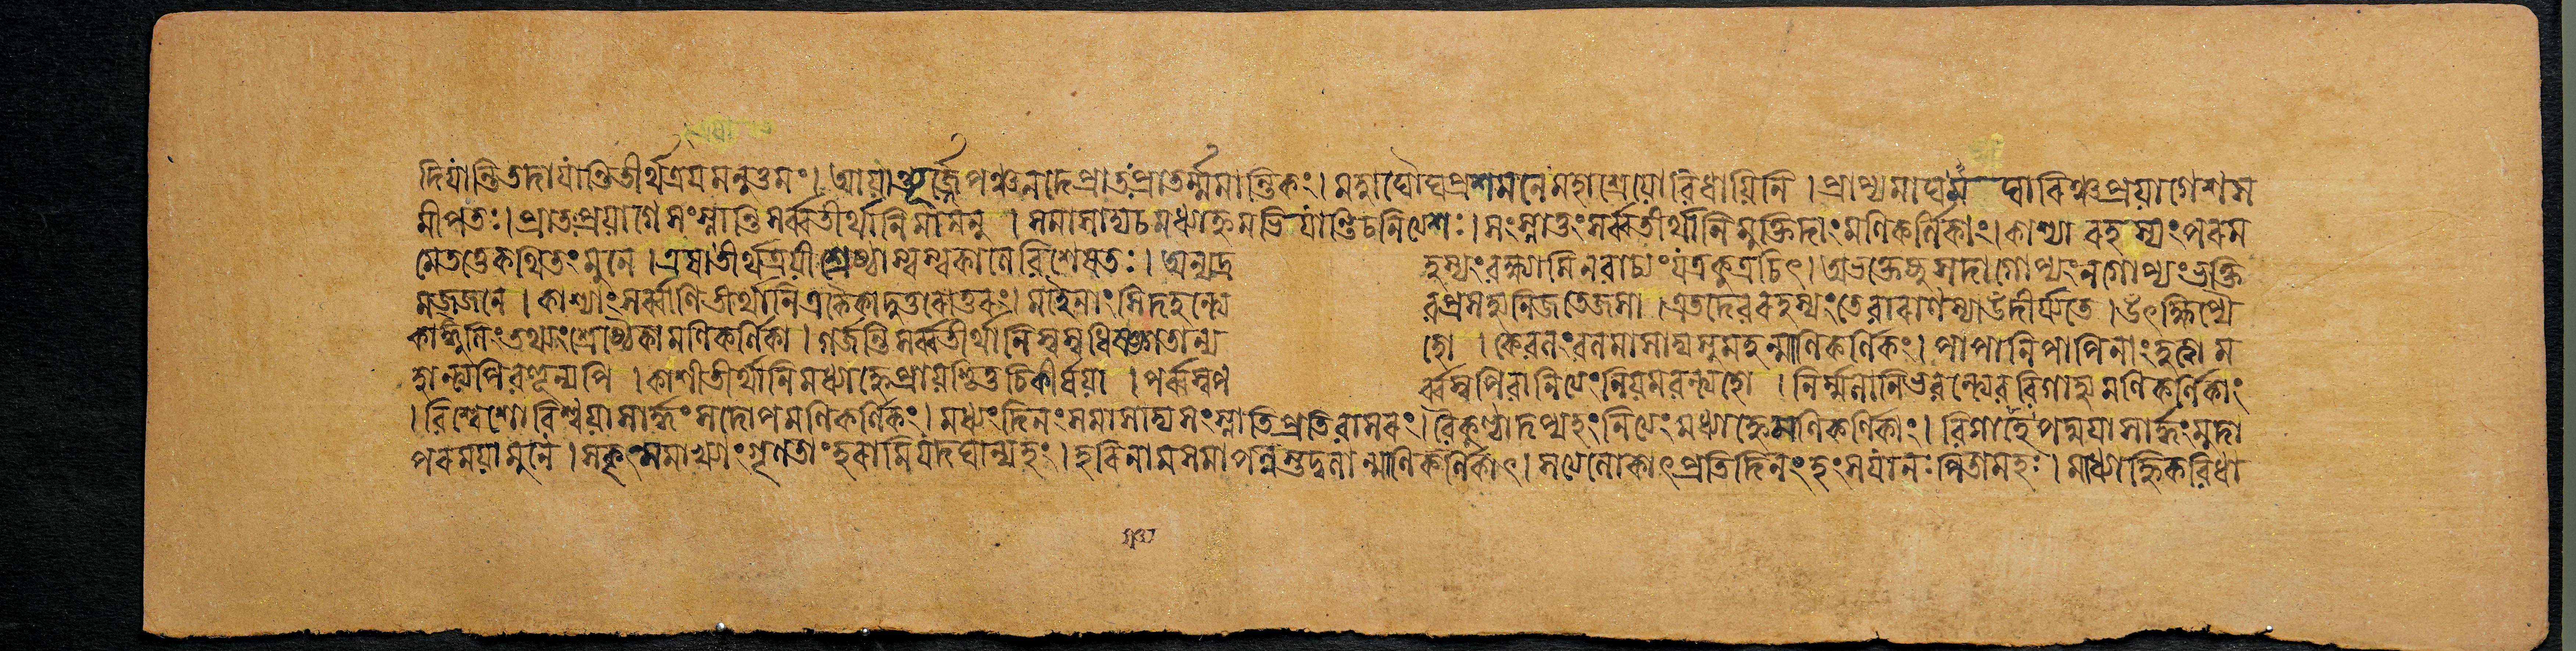 দিযান্তিতদাযান্তিতীর্থত্রয়মনুত্তমং। আযাত্যূর্জ্জেপঞ্চনদেপ্রাতঃপ্রাতর্ম্মমান্তিকং। মহাঘৌঘপ্রশমনেমহাশ্রেয়োবিধায়িনি । প্রাপ্যমাঘমঘারিঞ্চপ্রয়াগেশস
মীপতঃ। প্রাতঃপ্রয়াগেসংস্নান্তিসর্ব্বতীর্থানিমামনু । সমাসাদ্যচমধ্যাহ্নমভিযান্তিচনিত্যশঃ। সংস্নাতুংসর্ব্বতীর্থানিমুক্তিদাংমণিকর্ণিকাং। কাশ্যা রহস্যংপরম
মেতত্তেকথিতংমুনে । এষাতীর্থত্রয়ীশ্রেষ্ঠাস্বস্বকালেবিশেষতঃ । অন্যদ্র হস্যংবক্ষ্যামিনবাচ্যংযত্রকুত্রচিৎ। অভক্তেষুসদাগোপ্যংনগোপ্যংভক্তি
মজ্জনে । কাশ্যাংসর্ব্বাণিতীর্থানিএকৈকাদুত্তরোত্তরং। মহৈনাংসিদহন্ত্যে বপ্রসহ্যনিজতেজসা । এতদেবরহস্যংতেবারাণস্যাউদীর্য্যতে । উৎক্ষিপ্যৈ
কাঙ্গুলিংতথ্যংশ্রেষ্ঠৈকামণিকর্ণিকা । গর্জন্তিসর্ব্বতীর্থানিস্বস্বধিষ্ণ্যগতান্য হো । কেবলংবলমাসাদ্যসুমহন্মাণিকর্ণিকং। পাপানিপাপিনাংহত্বা ম
হান্ত্যপিবহূন্যপি । কাশীতীর্থানিমধ্যাহ্নেপ্রায়শ্চিত্তচিকীর্ষয়া । পর্ব্বস্বপ র্ব্বস্বপিবানিত্যংনিয়মবন্ত্যহো । নির্ম্মলানিভবন্ত্যেববিগাহ্যমণিকর্ণিকাং
। বিশ্বেশোবিশ্বয়াসার্দ্ধংসদোপমণিকর্ণিকং। মধ্যংদিনংসমাসাদ্যসংস্নাতিপ্রতিবাসরং। বৈকুণ্ঠাদপ্যহংনিত্যংমধ্যাহ্নেমণিকর্ণিকাং। বিগাহেপদ্ময়াসার্দ্ধংমুদা
পরময়ামুনে । সকৃৎমমাখ্যাংগৃণতাংহরামিযদঘান্যহং। হরিনামসমাপন্নস্তদ্বলান্মাণিকর্ণিকাৎ। সত্যলোকাৎপ্রতিদিনংহংসযানঃপিতামহঃ। মাধ্যাহ্নিকবিধা